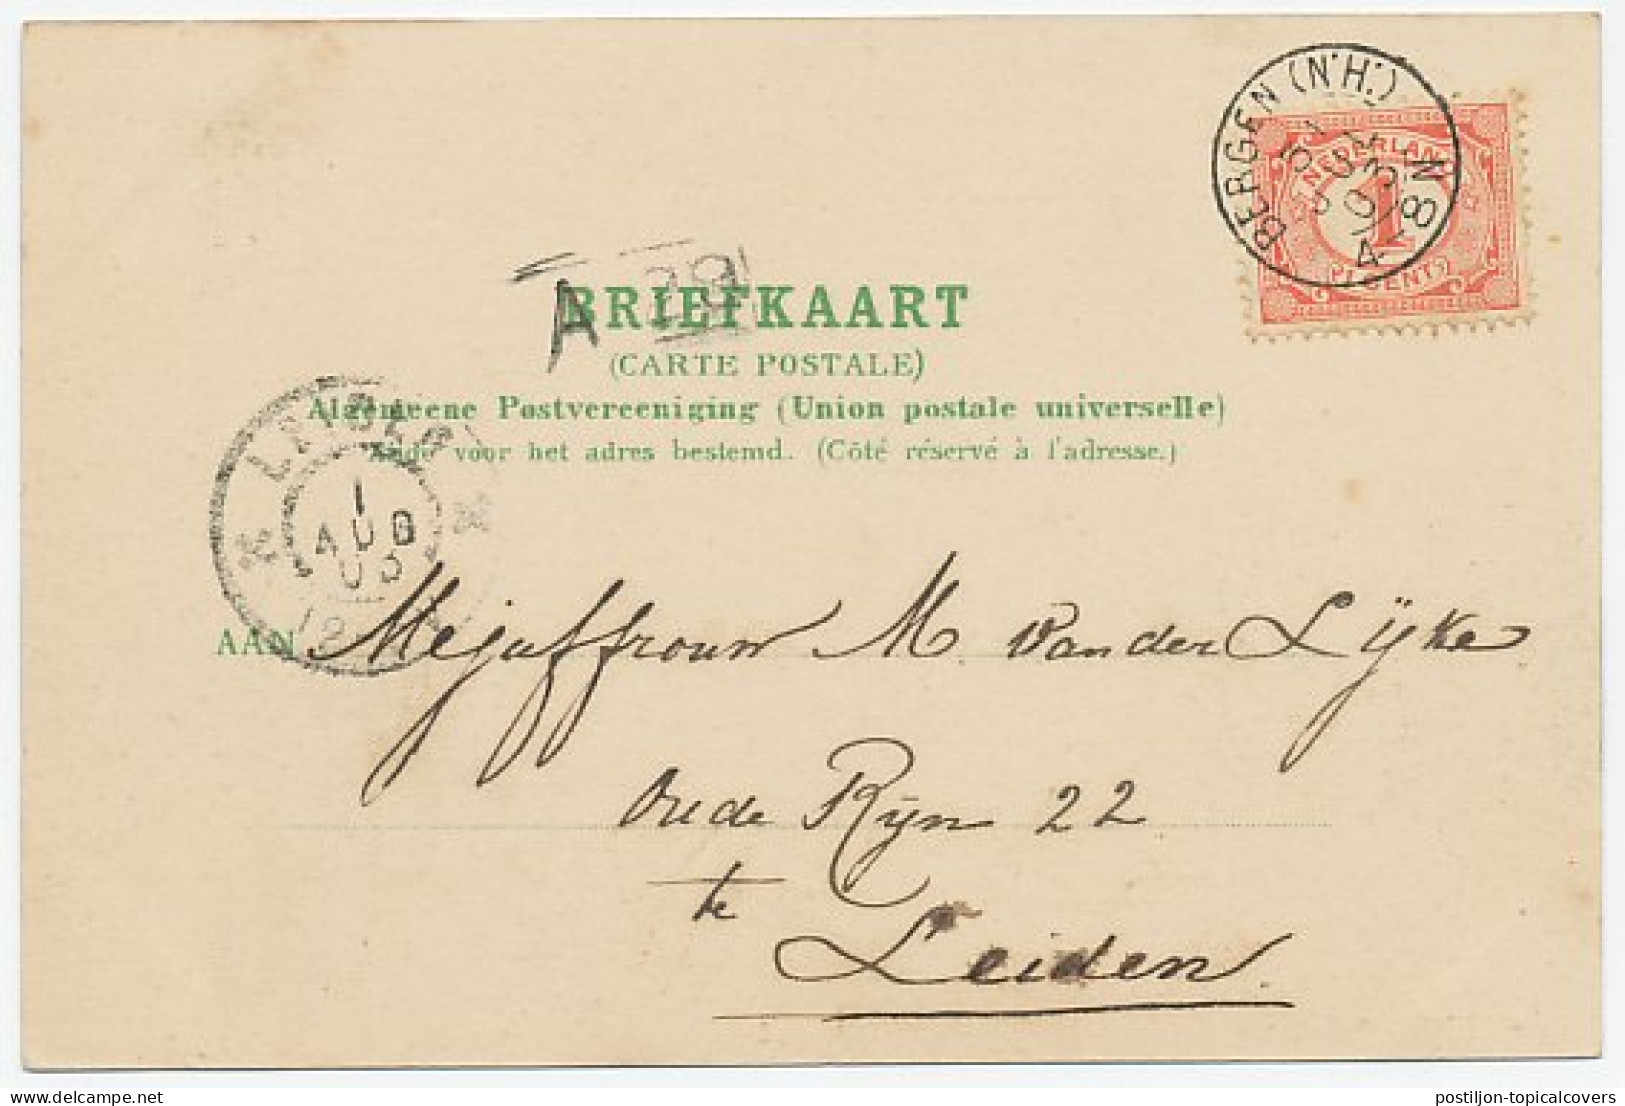 BERGEN (N.H.)
31 JUL 03
4-8N
NEDERLAND
1
CENT
A
BRIEFKAART
(CARTE POSTALE)
Algemeene Postvereeniging (Union postale universelle)
Zijde voor het adres bestemd. (Côté réservé à l'adresse.)
LEIDEN
1
AUG
03
AAN Mejuffrouw M. van der Lÿke
Oude Rijn 22
te
Leiden.
delcampe.net
postiljon-topicalcovers